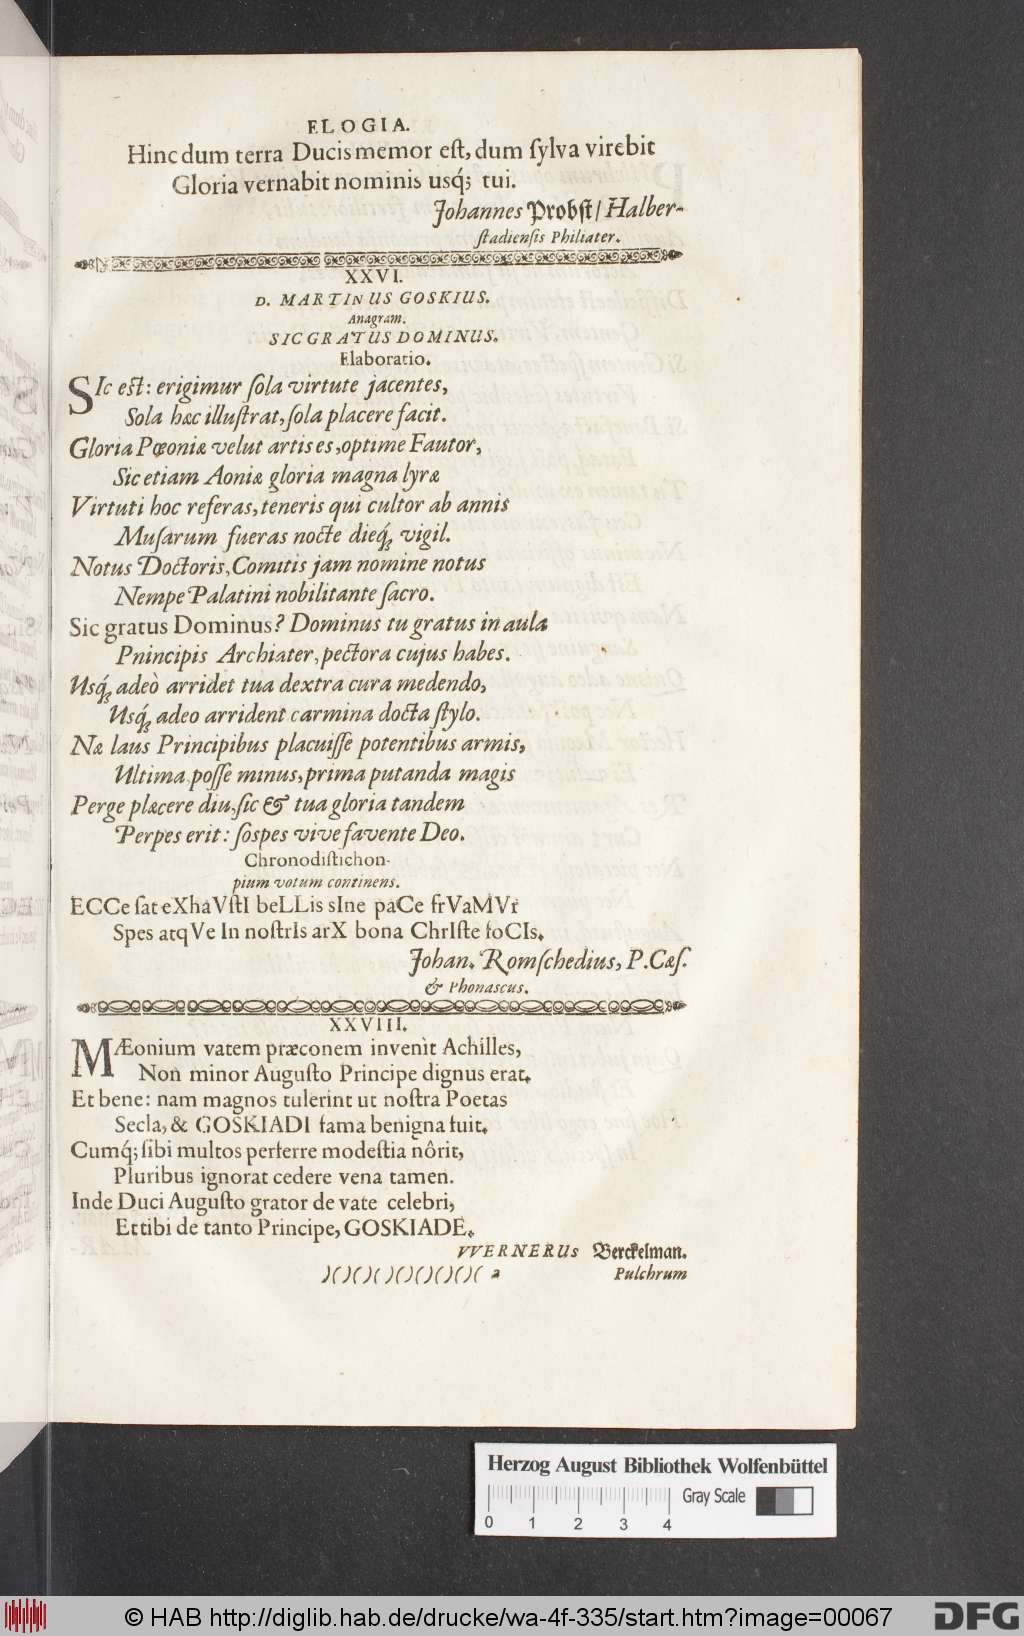 ELOGIA.
Hinc dum terra Ducis memor eſt, dum ſylva virebit
Gloria vernabit nominis usq́; tui.
Johannes Probſt / Halber-
ſtadienſis Philiater.
XXVI.
D. MARTINUS GOSKIUS.
Anagram.
SIC GRATUS DOMINUS.
Elaboratio.
SIc eſt: erigimur ſola virtute jacentes,
Sola hæc illuſtrat, ſola placere facit.
Gloria Pœoniæ velut artis es, optime Fautor,
Sic etiam Aoniæ gloria magna lyræ
Virtuti hoc referas, teneris qui cultor ab annis
Muſarum fueras nocte dieq́; vigil.
Notus Doctoris, Comitis jam nomine notus
Nempe Palatini nobilitante ſacro.
Sic gratus Dominus? Dominus tu gratus in aula
Pnincipis Archiater, pectora cujus habes.
Usq́; adeò arridet tua dextra cura medendo,
Usq́; adeo arrident carmina docta ſtylo.
Næ laus Principibus placuiſſe potentibus armis,
Ultima poſſe minus, prima putanda magis
Perge placere diu, ſic & tua gloria tandem
Perpes erit: ſospes vive favente Deo.
Chronodiſtichon
pium votum continens.
ECCe ſat eXhaVſtI beLLis sIne paCe frVaMVr
Spes atqVe In noſtrIs arX bona ChrIſte foCIs.
Johan. Romſchedius, P. Cæſ.
& Phonascus.
XXVIII.
MÆonium vatem præconem invenit Achilles,
Non minor Auguſto Principe dignus erat.
Et bene: nam magnos tulerint ut noſtra Poetas
Secla, & GOSKIADI fama benigna fuit.
Cumq́; ſibi multos perferre modeſtia nôrit,
Pluribus ignorat cedere vena tamen.
Inde Duci Auguſto grator de vate celebri,
Et tibi de tanto Principe, GOSKIADE.
VVERNERUs Berckelman.
)()()()()()()()( 2
Pulchrum
Herzog August Bibliothek Wolfenbüttel
Gray Scale
0 1 2 3 4
© HAB http://diglib.hab.de/drucke/wa-4f-335/start.htm?image=00067
DFG